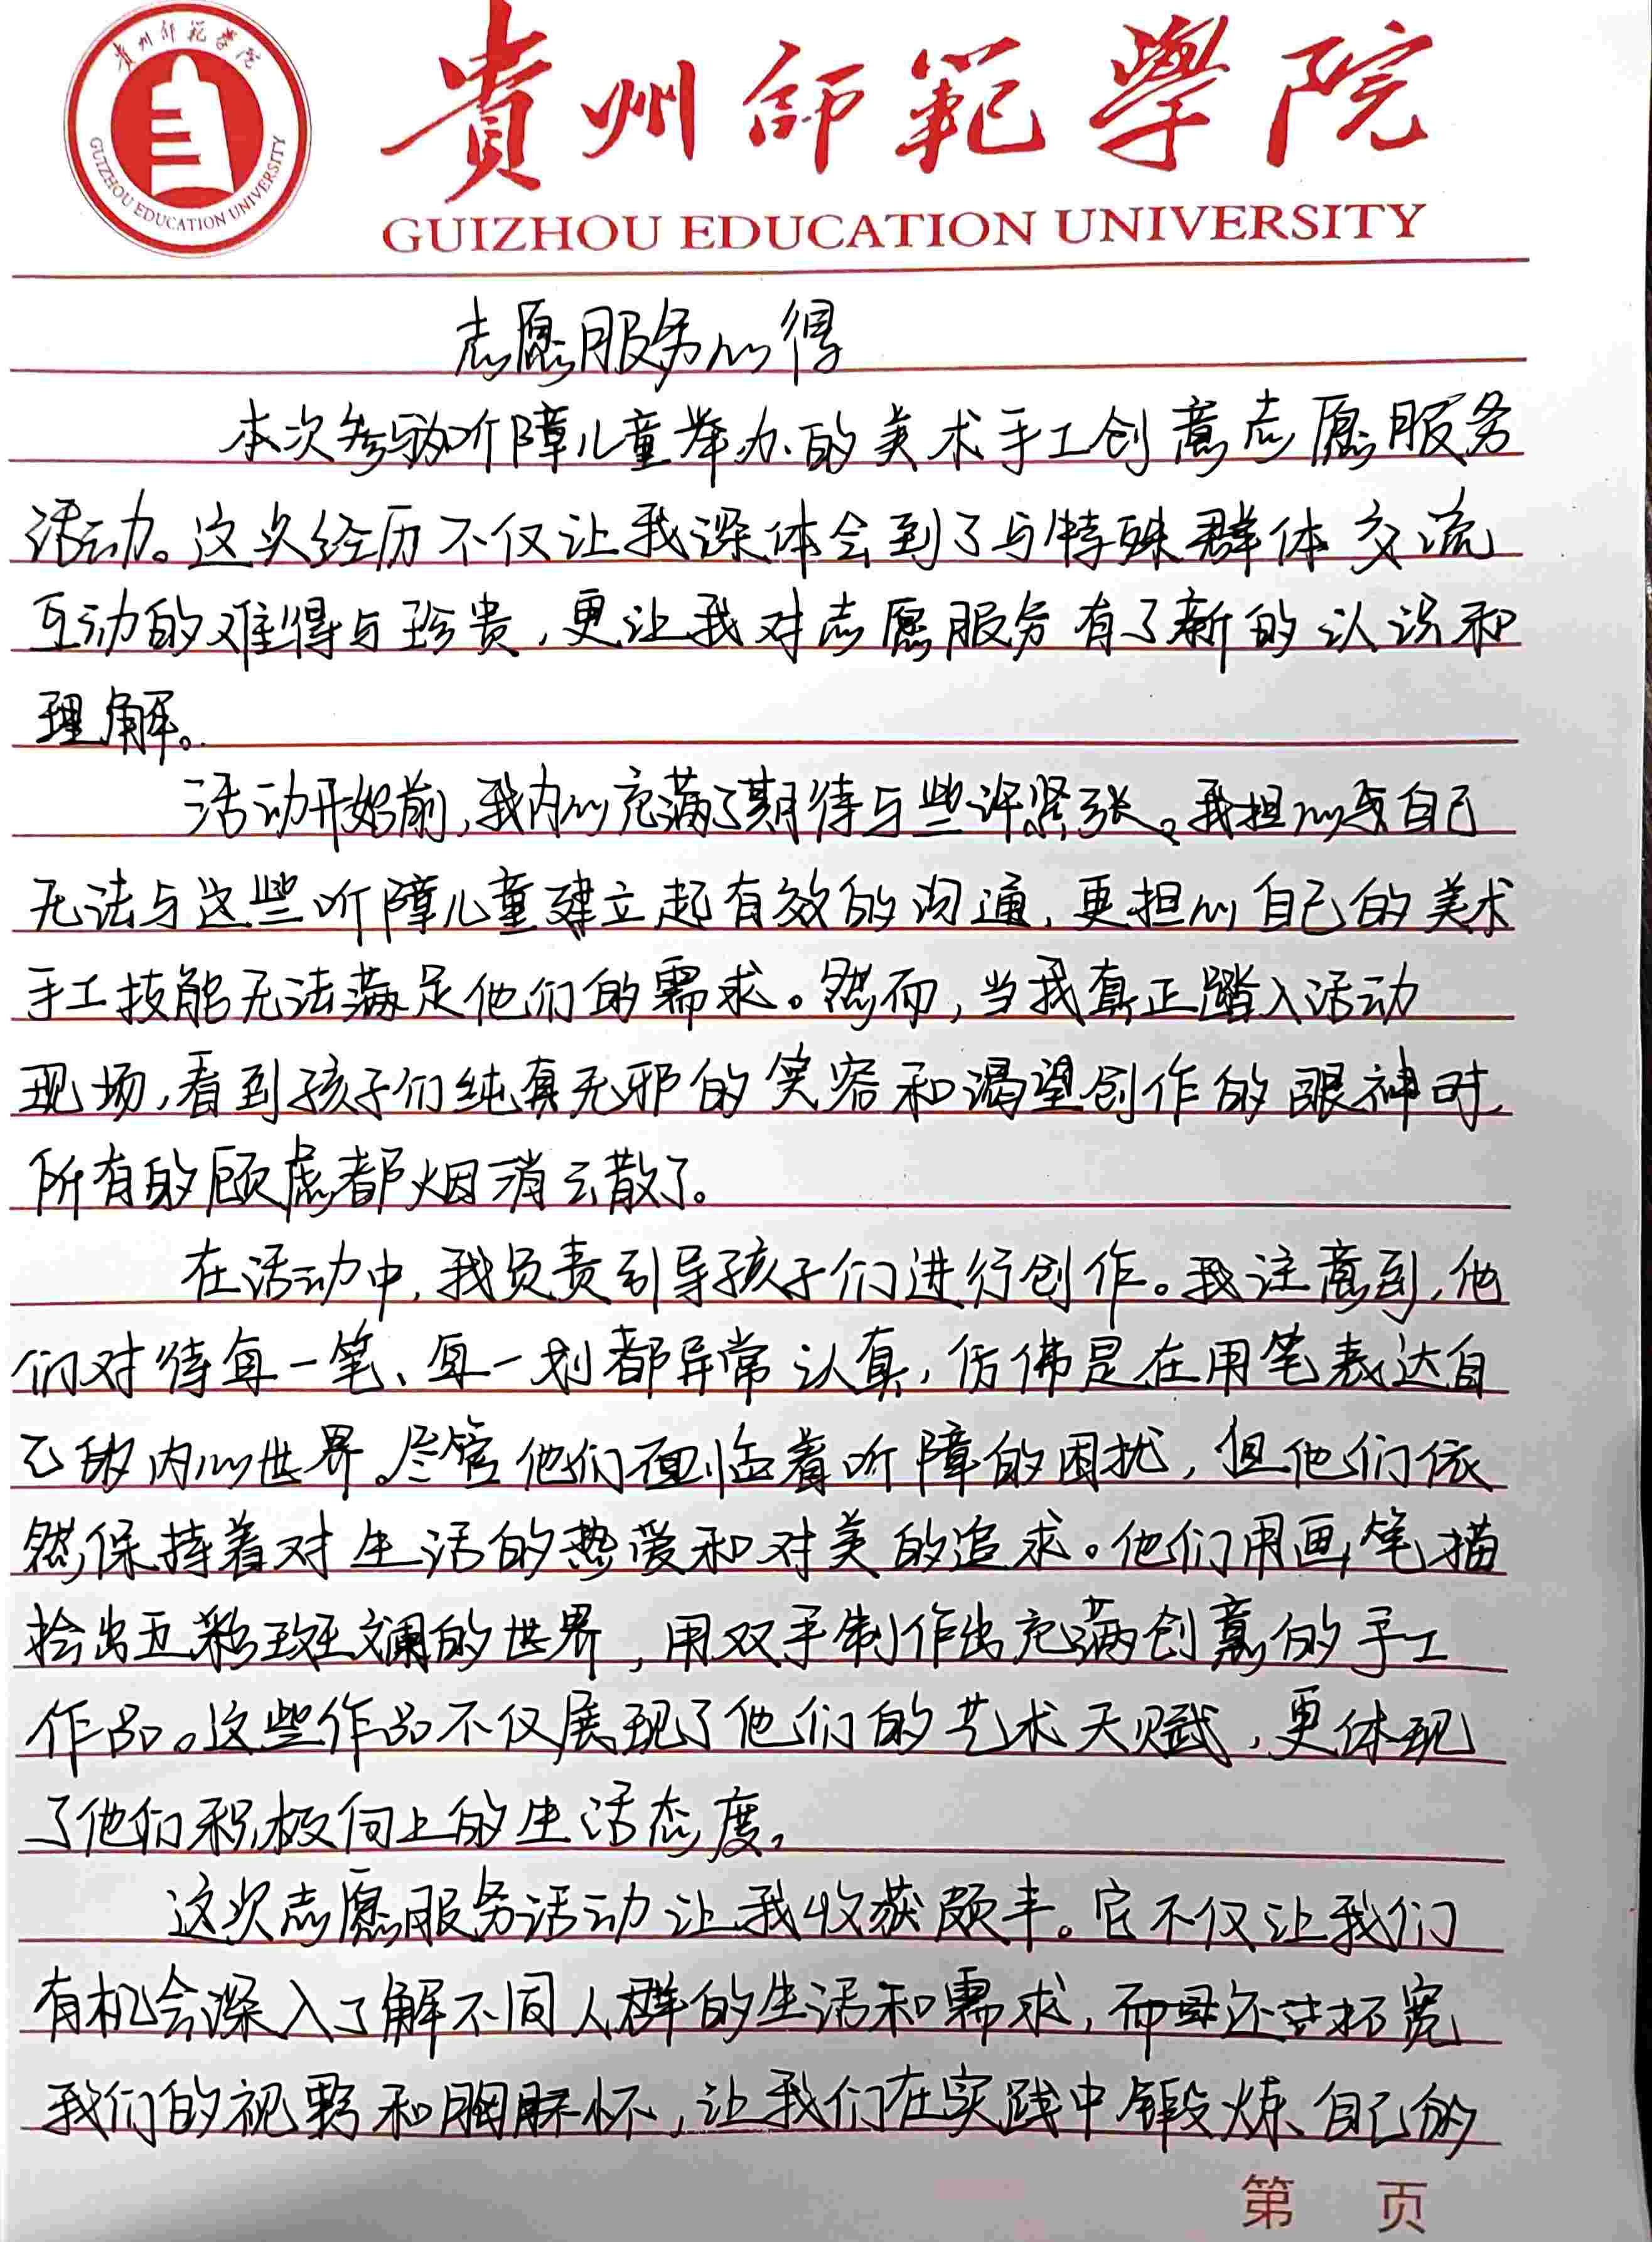 貴州師範学院
GUIZHOU EDUCATION UNIVERSITY
貴州師範學院
GUIZHOU EDUCATION UNIVERSITY
志愿服务心得
本次参与听障儿童举办的美术手工创意志愿服务
活动。这次经历不仅让我深体会到了与特殊群体交流
互动的难得与珍贵,更让我对志愿服务有了新的认识和
理解。
活动开始前,我内心充满了期待与些许紧张。我担心自己
无法与这些听障儿童建立起有效的沟通,更担心自己的美术
手工技能无法满足他们的需求。然而,当我真正踏入活动
现场,看到孩子们纯真无邪的笑容和渴望创作的眼神时,
所有的顾虑都烟消云散了。
在活动中,我负责引导孩子们进行创作。我注意到,他
们对待每一笔、每一划都异常认真,仿佛是在用笔表达自
己的内心世界。尽管他们面临着听障的困扰,但他们依
然保持着对生活的热爱和对美的追求。他们用画笔描
绘出五彩斑斓的世界,用双手制作出充满创意的手工
作品。这些作品不仅展现了他们的艺术天赋,更体现
了他们积极向上的生活态度。
这次志愿服务活动让我收获颇丰。它不仅让我们
有机会深入了解不同人群的生活和需求,而且还拓宽
我们的视野和胸怀,让我们在实践中锻炼自己的
第 页